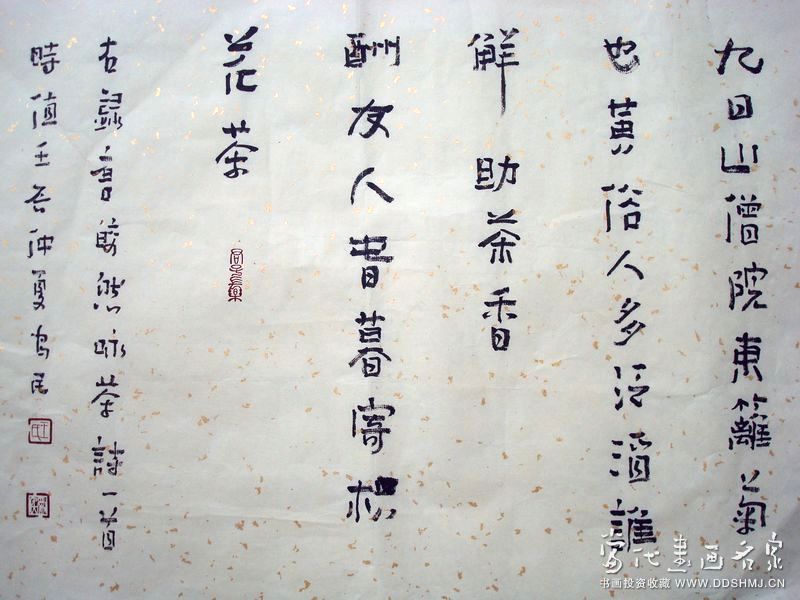 九日山僧院東籬菊
也黄俗人多泛酒誰
解助茶香
酬友人春暮寄枳
花茶
右錄詠茶詩一首
時值壬午仲夏
当代书画名家
书画投资收藏 WWW.DDSHMJ.CN